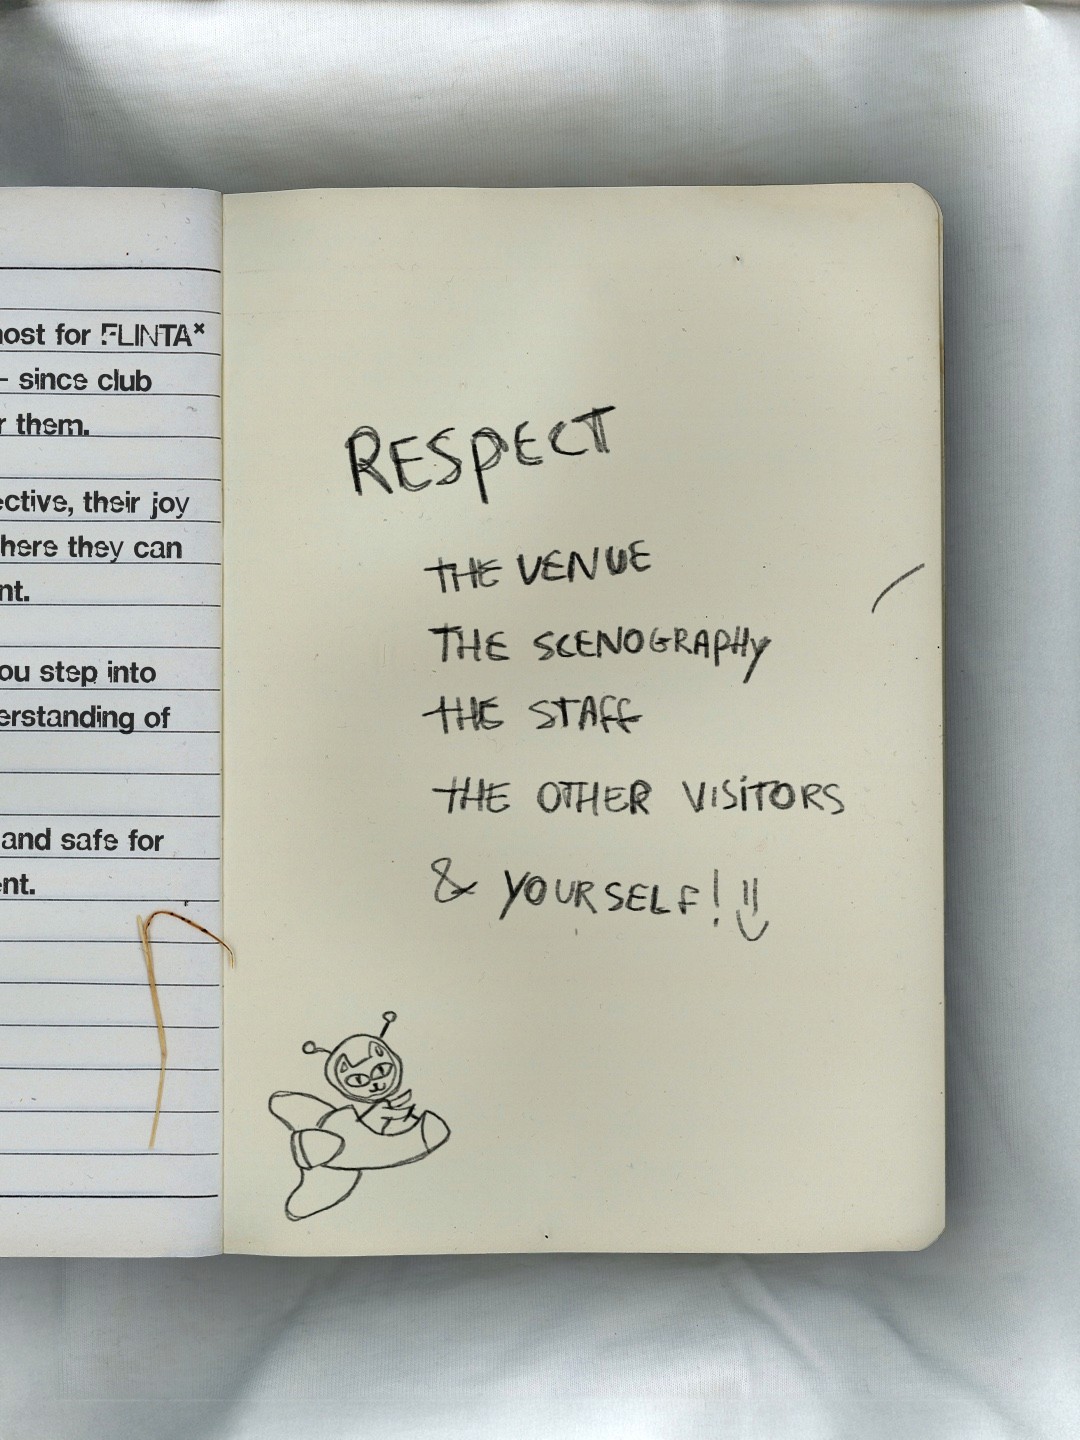 ost for FLINTA*
– since club
r them.
ective, their joy
here they can
nt.
ou step into
erstanding of
and safe for
ent.
RESPECT
THE VENUE
THE SCENOGRAPHY
THE STAFF
THE OTHER VISITORS
& YOURSELF! :)